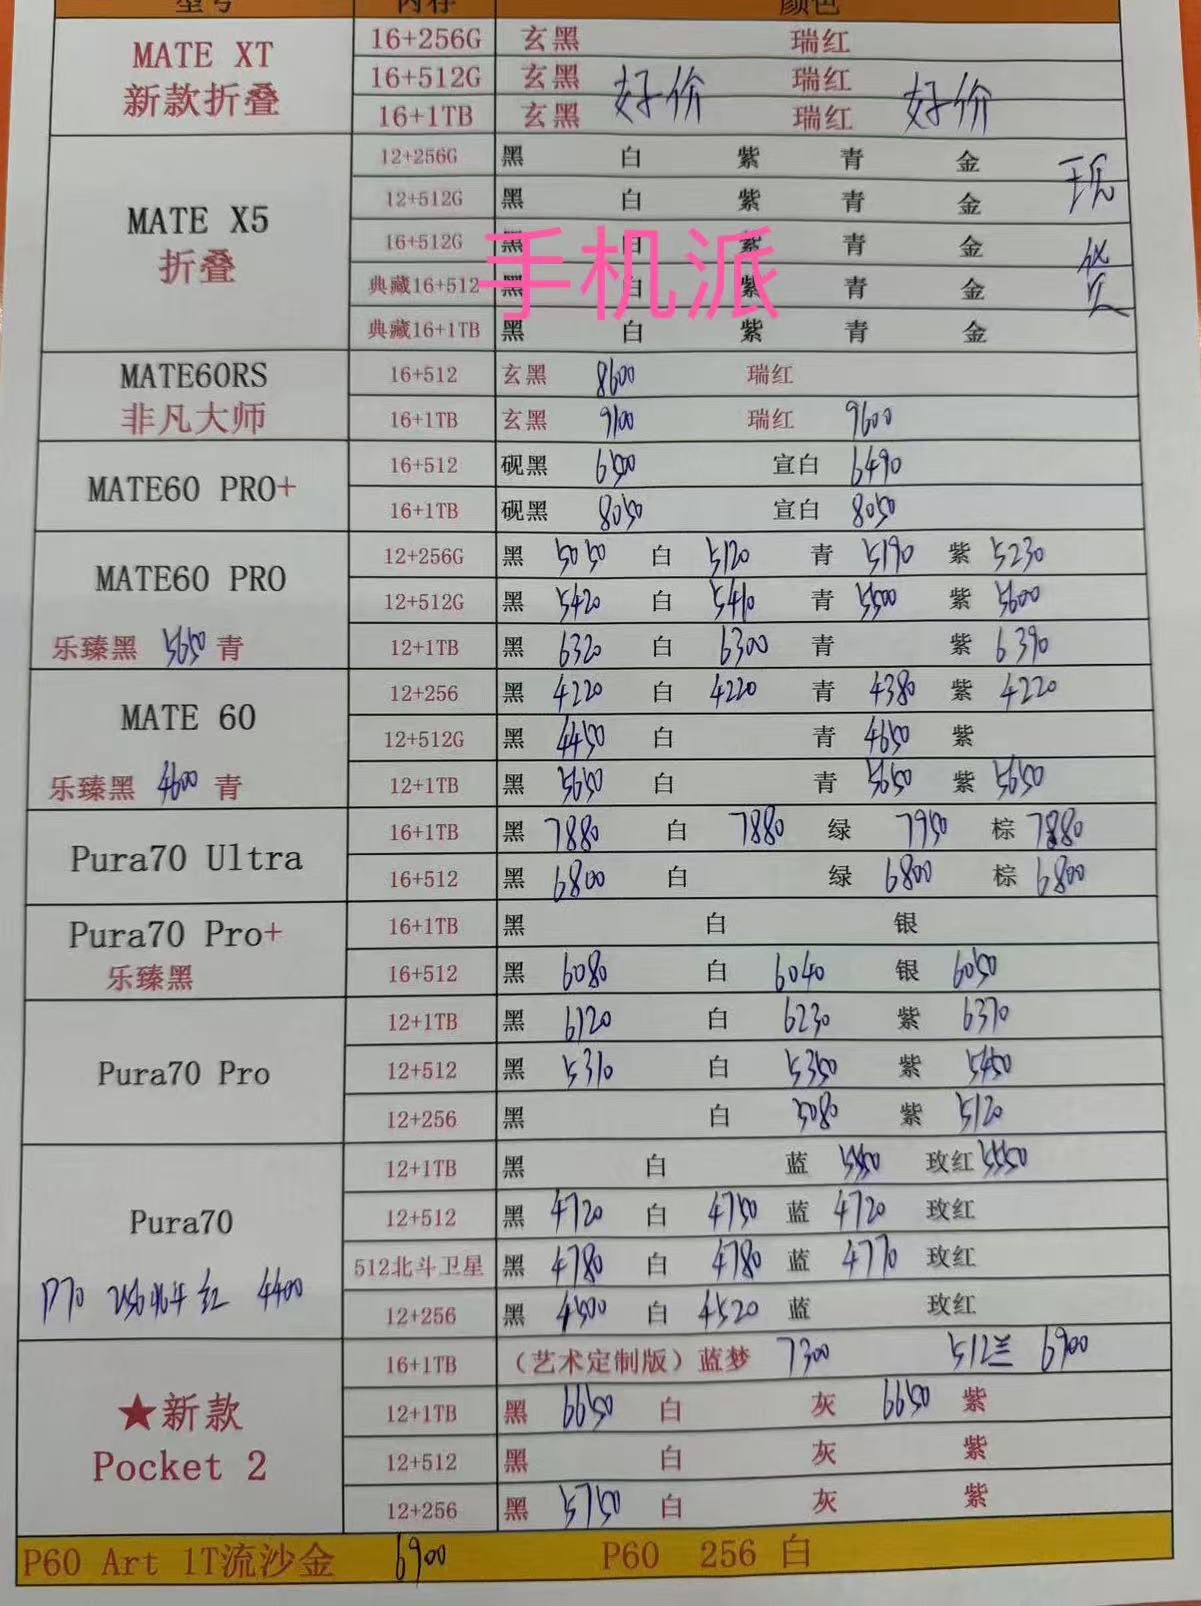 型号 内存 颜色
MATE XT
新款折叠
16+256G 玄黑 瑞红
16+512G 玄黑 好价 瑞红 好价
16+1TB 玄黑 瑞红
MATE X5
折叠
12+256G 黑 白 紫 青 金
12+512G 黑 白 紫 青 金
16+512G 黑 白 紫 青 金
典藏16+512 黑 白 紫 青 金
典藏16+1TB 黑 白 紫 青 金
手机派
MATE60RS
非凡大师
16+512 玄黑 8600 瑞红
16+1TB 玄黑 9100 瑞红 9600
MATE60 PRO+
16+512 砚黑 宣白 6490
16+1TB 砚黑 8050 宣白 8050
MATE60 PRO
乐臻黑 5650 青
12+256G 黑 5050 白 5120 青 5190 紫 5230
12+512G 黑 5420 白 5410 青 5500 紫 5600
12+1TB 黑 6320 白 6300 青 紫 6390
MATE 60
乐臻黑 4600 青
12+256 黑 4220 白 4220 青 4380 紫 4220
12+512G 黑 4450 白 青 4650 紫
12+1TB 黑 5650 白 青 5650 紫 5650
Pura70 Ultra
16+1TB 黑 7880 白 7880 绿 7950 棕 7880
16+512 黑 6800 白 绿 6800 棕 6800
Pura70 Pro+
乐臻黑
16+1TB 黑 白 银
16+512 黑 6080 白 6040 银 6050
Pura70 Pro
12+1TB 黑 6120 白 6230 紫 6370
12+512 黑 5310 白 5350 紫 5450
12+256 黑 白 5080 紫 5120
Pura70
P70 256北斗 红 4400
12+1TB 黑 白 蓝 5550 玫红 5550
12+512 黑 4720 白 4750 蓝 4720 玫红
512北斗卫星 黑 4780 白 4780 蓝 4770 玫红
12+256 黑 4500 白 4520 蓝 玫红
★新款
Pocket 2
16+1TB （艺术定制版）蓝梦 7300 512兰 6900
12+1TB 黑 6650 白 灰 6650 紫
12+512 黑 白 灰 紫
12+256 黑 5750 白 灰 紫
P60 Art 1T流沙金 6900 P60 256 白